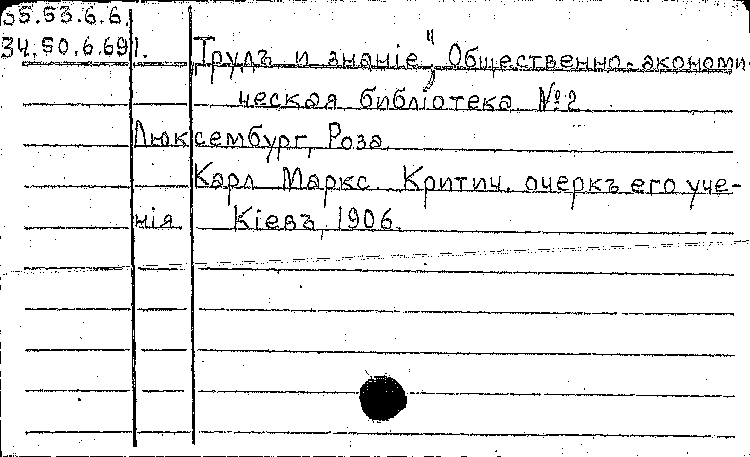 35.53.6.6.
34.50.6.691. Трудъ и знаніе", Общественно-экономи-
ческая библіотека №2
Люксембург, Роза
Карл Маркс. Критич. очеркъ его уче-
нія. Кіевъ, 1906.